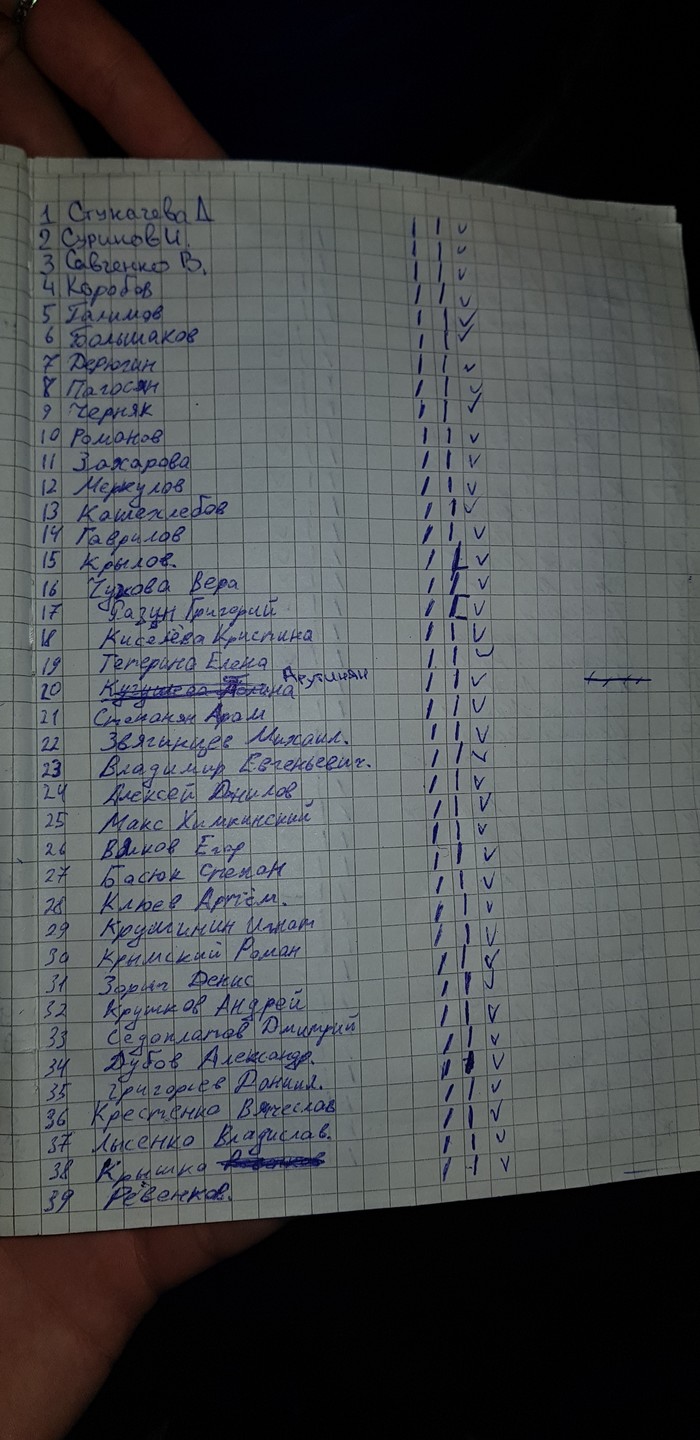 1 Стукачева Д
2 Суринов И.
3 Савченко В.
4 Коробов
5 Галимов
6 Большаков
7 Дерюгин
8 Пагосян
9 Черняк
10 Романов
11 Захарова
12 Меркулов
13 Кашехлебов
14 Гаврилов
15 Крылов.
16 Чужова Вера
17 Разун Григорий
18 Киселёва Кристина
19 Тетерина Елена
20 Арутинян
21 Степанян Арам
22 Звягинцев Михаил.
23 Владимир Евгеньевич.
24 Алексей Данилов
25 Макс Химкинский
26 Егор
27 Басюк Степан
28 Клюев Артём.
29 Кружинин Игнат
30 Крымский Роман
31 Денис
32 Крутков Андрей
33 Седоплатов Дмитрий
34 Дубов Александр.
35 Григорьев Даниил.
36 Крестенко Вячеслав
37 Лысенко Владислав.
38 Крышка
39 Ревенков.